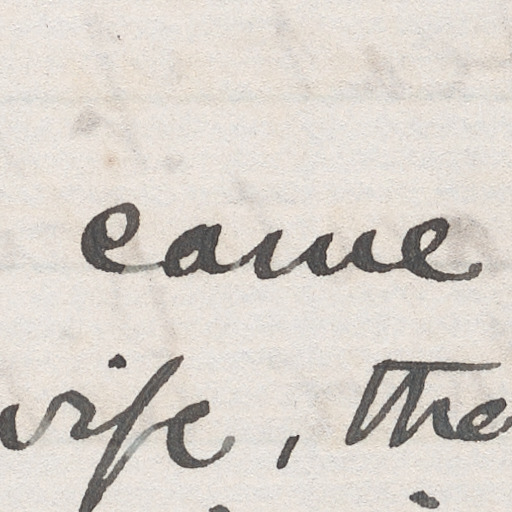 came
wife, the